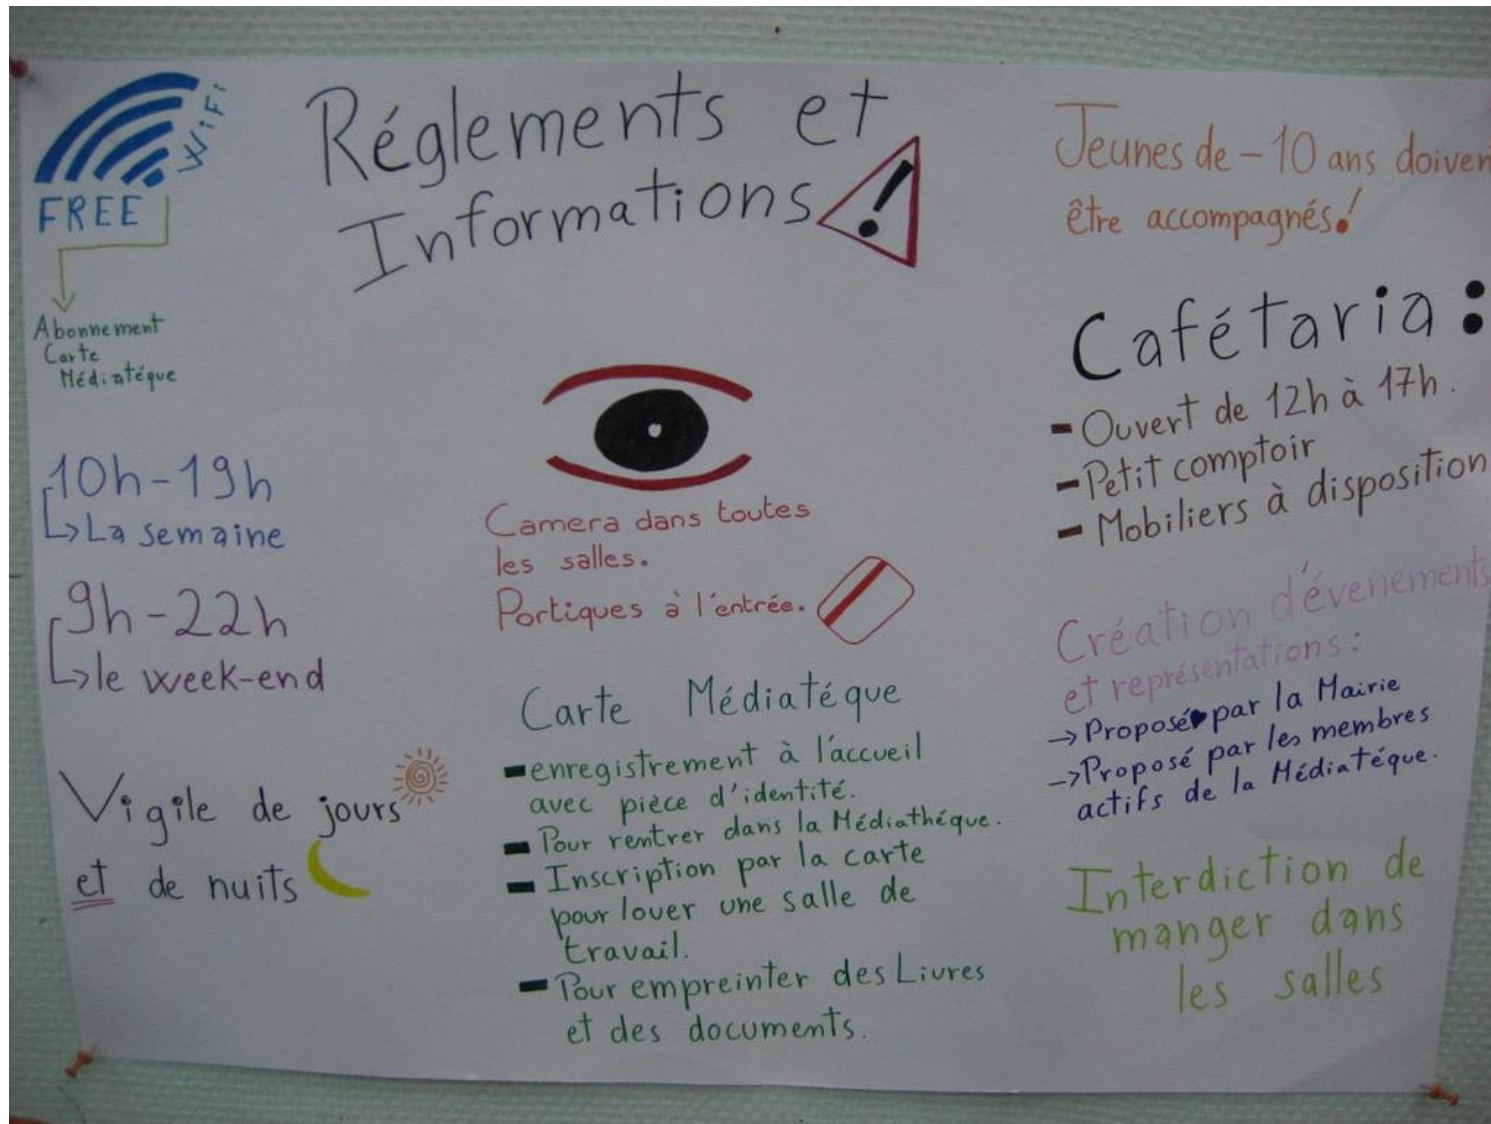 WiFi
FREE
Abonnement
Carte
Médiatéque
10h-19h
La semaine
9h-22h
le week-end
Vigile de jours
et de nuits
Réglements et
Informations
!
Camera dans toutes
les salles.
Portiques à l'entrée.
Carte Médiatéque
- enregistrement à l'accueil
avec pièce d'identité.
- Pour rentrer dans la Médiathéque.
- Inscription par la carte
pour louer une salle de
travail.
- Pour empreinter des Livres
et des documents.
Jeunes de -10 ans doiven
être accompagnés!
Cafétaria :
- Ouvert de 12h à 17h.
- Petit comptoir
- Mobiliers à disposition
Création d'évenements
et représentations :
→ Proposé par la Mairie
→ Proposé par les membres
actifs de la Médiatéque.
Interdiction de
manger dans
les salles